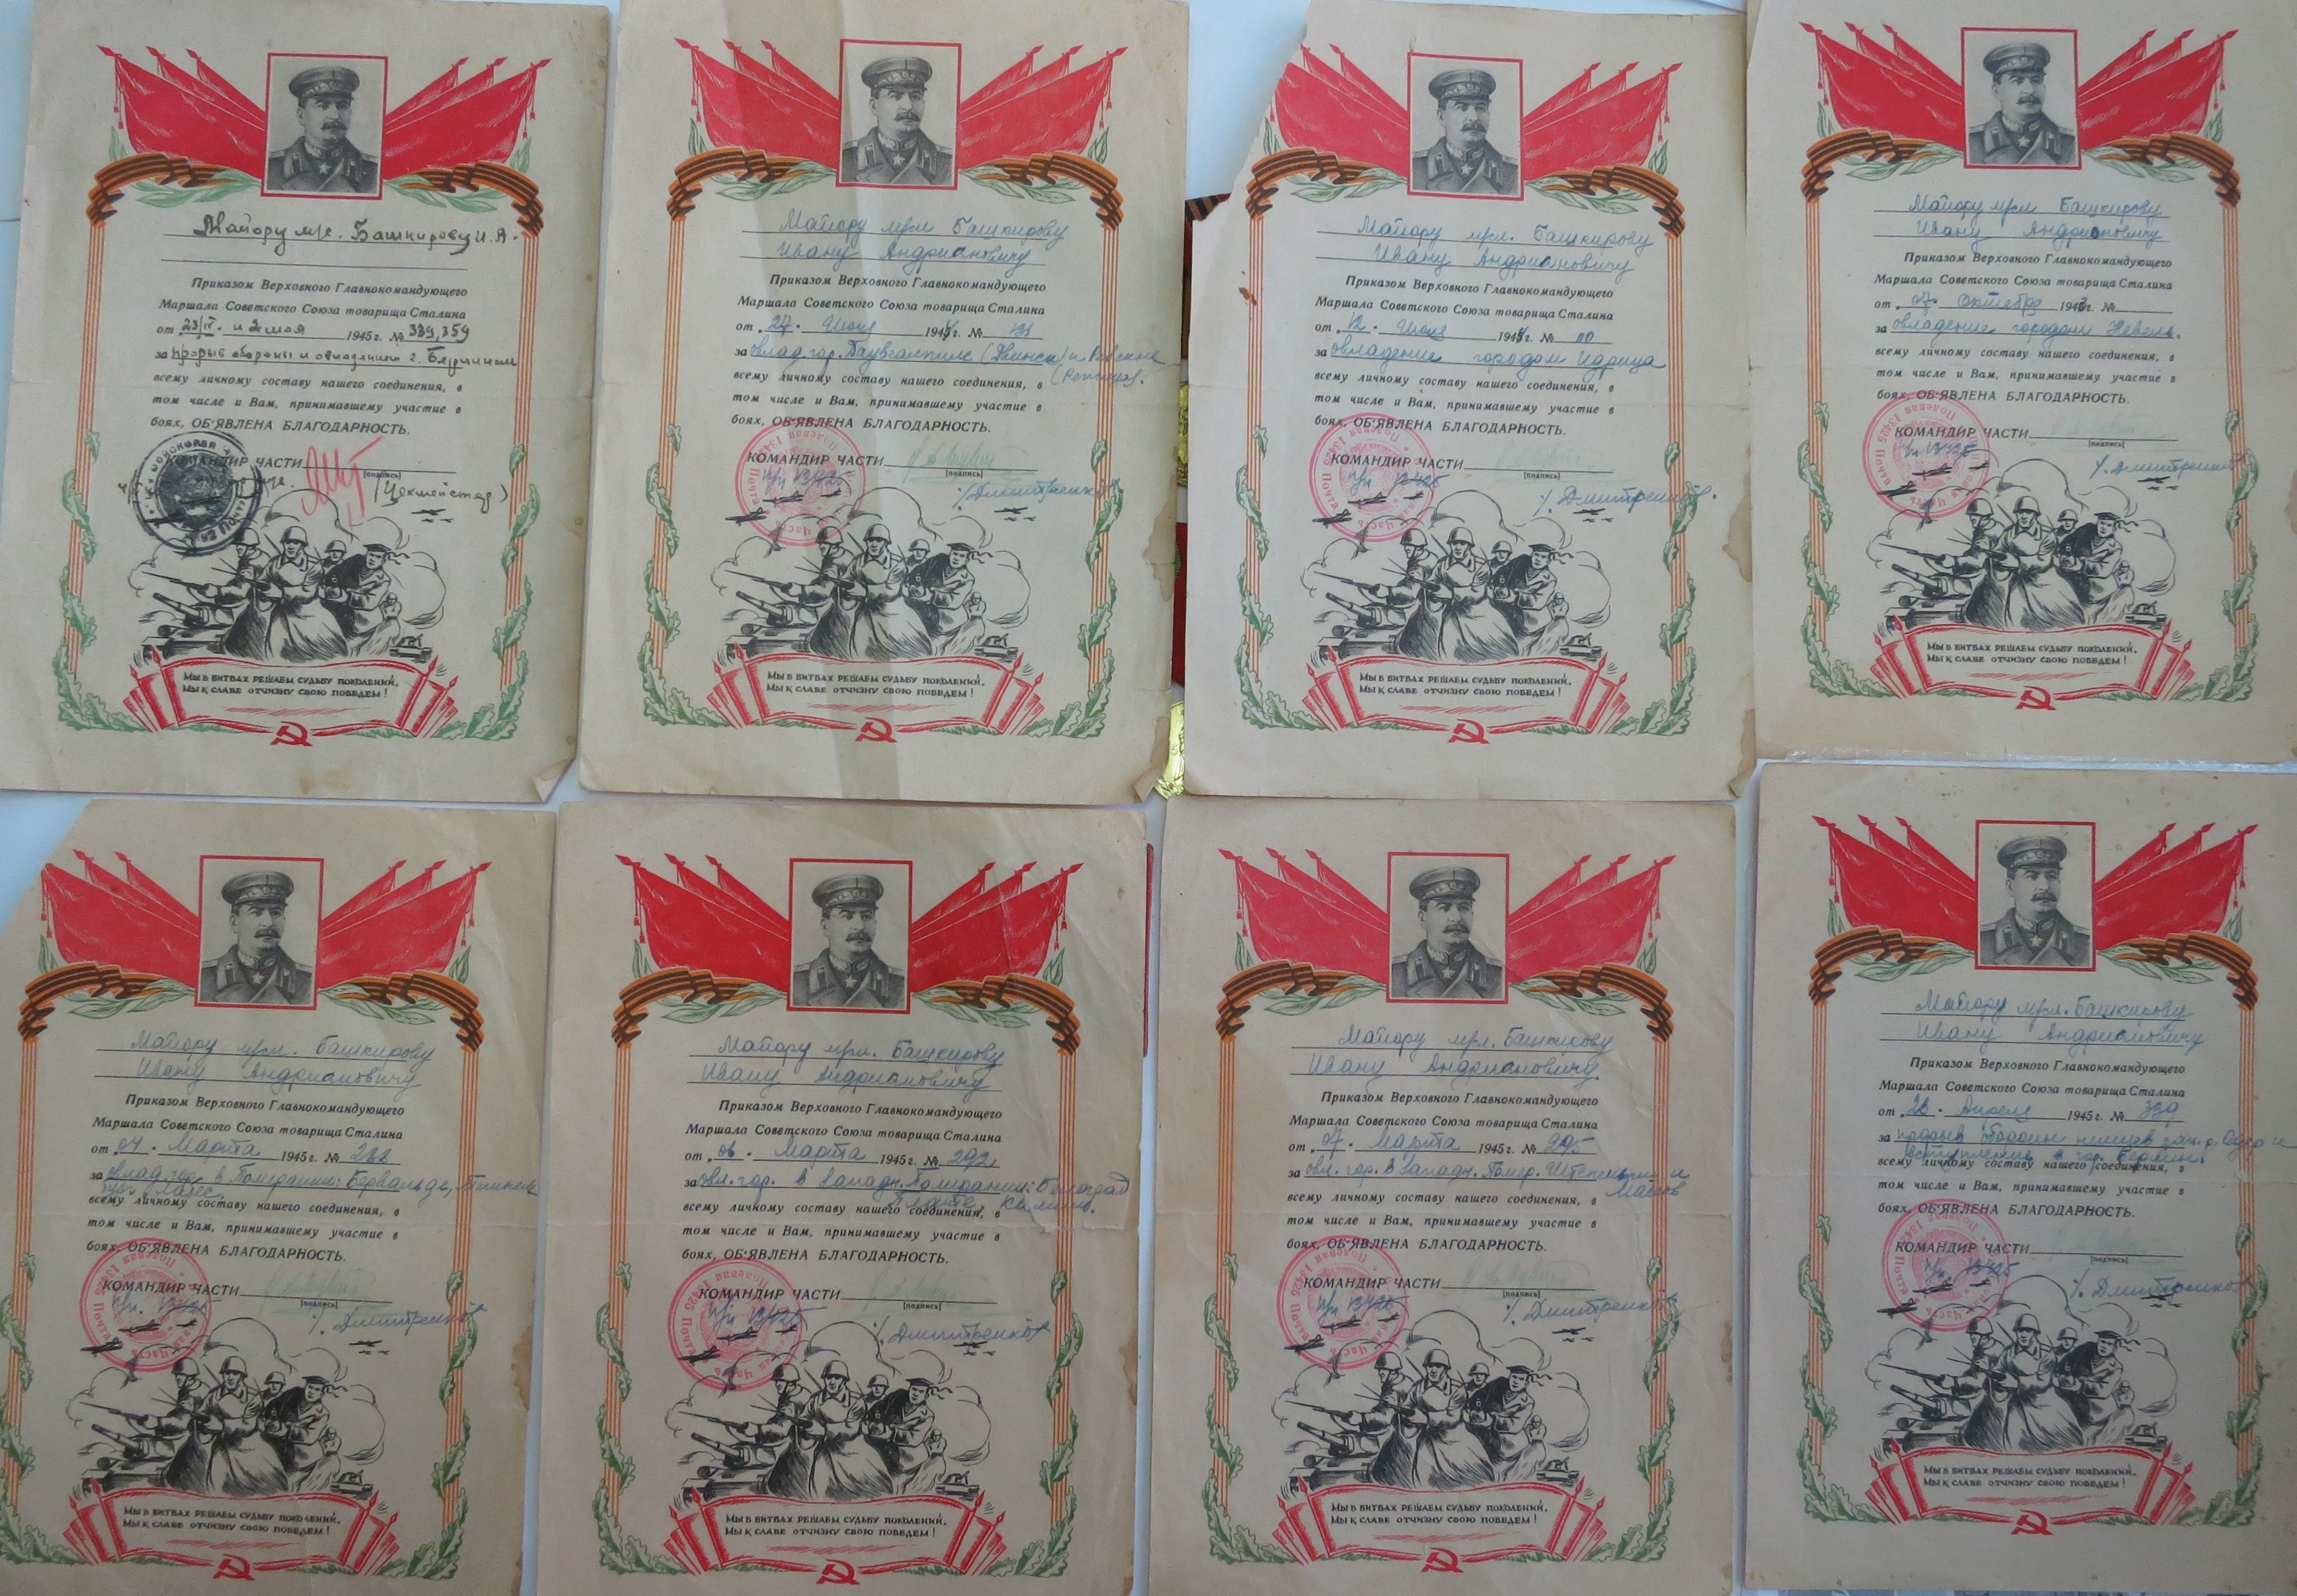 Майору м/с. Башкирову И. А.
Приказом Верховного Главнокомандующего
Маршала Советского Союза товарища Сталина
от „23/IV. и 2 мая 1945 г. № 339, 359
за прорыв обороны и овладении г. Берлином
всему личному составу нашего соединения, в
том числе и Вам, принимавшему участие в
боях, ОБ'ЯВЛЕНА БЛАГОДАРНОСТЬ.
КОМАНДИР ЧАСТИ
(подпись)
(Цехмейстер)
Мы в битвах решаем судьбу поколений,
Мы к славе отчизну свою поведем!
Майору Башкирову
Ивану Андриановичу
Приказом Верховного Главнокомандующего
Маршала Советского Союза товарища Сталина
от „27. Июля 1944 г. №
за овлад. гор. Даугавпилс (Двинск) и
всему личному составу нашего соединения, в
том числе и Вам, принимавшему участие в
боях, ОБ'ЯВЛЕНА БЛАГОДАРНОСТЬ.
КОМАНДИР ЧАСТИ
(подпись)
п/п 13425
/. Дмитренков
Мы в битвах решаем судьбу поколений,
Мы к славе отчизну свою поведем!
Майору Башкирову
Ивану Андриановичу
Приказом Верховного Главнокомандующего
Маршала Советского Союза товарища Сталина
от „12. Июля 1944 г. №
за овладение городом Идрица
всему личному составу нашего соединения, в
том числе и Вам, принимавшему участие в
боях, ОБ'ЯВЛЕНА БЛАГОДАРНОСТЬ.
КОМАНДИР ЧАСТИ
(подпись)
п/п 13425
/. Дмитренков.
Мы в битвах решаем судьбу поколений,
Мы к славе отчизну свою поведем!
Майору Башкирову
Ивану Андриановичу
Приказом Верховного Главнокомандующего
Маршала Советского Союза товарища Сталина
от „07. Октября 1943 г. №
за овладение городом Невель.
всему личному составу нашего соединения, в
том числе и Вам, принимавшему участие в
боях, ОБ'ЯВЛЕНА БЛАГОДАРНОСТЬ.
КОМАНДИР ЧАСТИ
(подпись)
п/п 13425
/. Дмитренков
Мы в битвах решаем судьбу поколений,
Мы к славе отчизну свою поведем!
Майору Башкирову
Ивану Андриановичу
Приказом Верховного Главнокомандующего
Маршала Советского Союза товарища Сталина
от „04. Марта 1945 г. №
за овлад. гор. в Померании: Бервальде,
всему личному составу нашего соединения, в
том числе и Вам, принимавшему участие в
боях, ОБ'ЯВЛЕНА БЛАГОДАРНОСТЬ.
КОМАНДИР ЧАСТИ
(подпись)
п/п 13425
/. Дмитренков
Мы в битвах решаем судьбу поколений,
Мы к славе отчизну свою поведем!
Майору Башкирову
Ивану Андриановичу
Приказом Верховного Главнокомандующего
Маршала Советского Союза товарища Сталина
от „06. Марта 1945 г. № 292
за овл. гор. в Западн. Померании: Белгард
всему личному составу нашего соединения, в
том числе и Вам, принимавшему участие в
боях, ОБ'ЯВЛЕНА БЛАГОДАРНОСТЬ.
КОМАНДИР ЧАСТИ
(подпись)
п/п 13425
/. Дмитренков
Мы в битвах решаем судьбу поколений,
Мы к славе отчизну свою поведем!
Майору Башкирову
Ивану Андриановичу
Приказом Верховного Главнокомандующего
Маршала Советского Союза товарища Сталина
от „07. Марта 1945 г. № 295
за овл. гор. в Западн. Помер. и
Массов
всему личному составу нашего соединения, в
том числе и Вам, принимавшему участие в
боях, ОБ'ЯВЛЕНА БЛАГОДАРНОСТЬ.
КОМАНДИР ЧАСТИ
(подпись)
п/п 13425
/. Дмитренков
Мы в битвах решаем судьбу поколений,
Мы к славе отчизну свою поведем!
Майору Башкирову
Ивану Андриановичу
Приказом Верховного Главнокомандующего
Маршала Советского Союза товарища Сталина
от Апреля 1945 г. № 339
за прорыв обороны немцев зап. р. Одер и
вступление в гор. Берлин.
всему личному составу нашего соединения, в
том числе и Вам, принимавшему участие в
боях, ОБ'ЯВЛЕНА БЛАГОДАРНОСТЬ.
КОМАНДИР ЧАСТИ
(подпись)
п/п 13425
/. Дмитренков
Мы в битвах решаем судьбу поколений,
Мы к славе отчизну свою поведем!